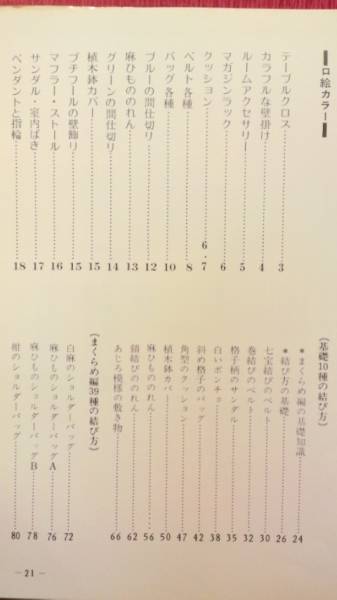 口絵カラー
テーブルクロス……3
カラフルな壁掛け……4
ルームアクセサリー……5
マガジンラック……6
クッション……6・7
ベルト各種……8
バッグ各種……10
ブルーの間仕切り……12
麻ひものれん……13
グリーンの間仕切り……14
植木鉢カバー……15
プチフールの壁飾り……15
マフラー・ストール……16
サンダル・室内ばき……17
ペンダントと指輪……18
(基礎10種の結び方)
＊まくらめ編の基礎知識……24
＊結び方の基礎……26
七宝結びのベルト……30
巻結びのベルト……32
格子柄のサンダル……35
白いポンチョ……38
斜め格子のバッグ……42
角型のクッション……47
植木鉢カバー……50
麻ひものれん……56
鎖結びののれん……62
あじろ模様の敷き物……66
(まくらめ編39種の結び方)
白麻のショルダーバッグ……72
麻ひものショルダーバッグA……76
麻ひものショルダーバッグB……78
紺のショルダーバッグ……80
— 21 —